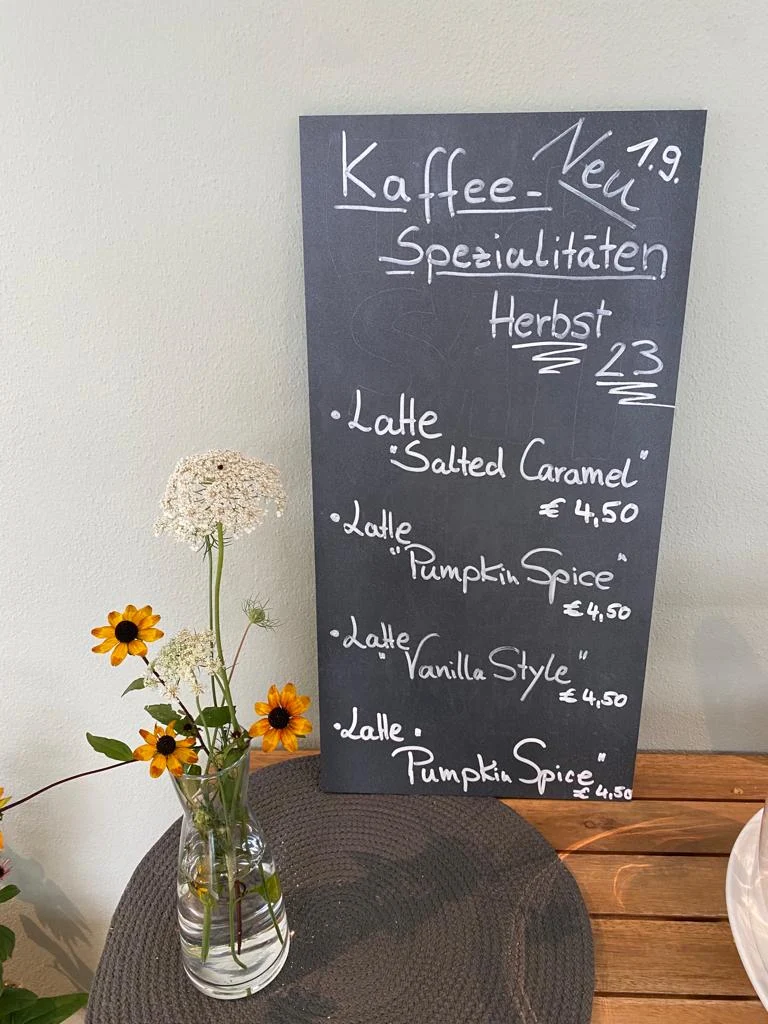 Kaffee- Neu 1.9.
Spezialitäten
Herbst
23
• Latte
"Salted Caramel"
€ 4,50
• Latte
"Pumpkin Spice"
€ 4,50
• Latte
"Vanilla Style"
€ 4,50
• Latte "
Pumpkin Spice"
€ 4,50